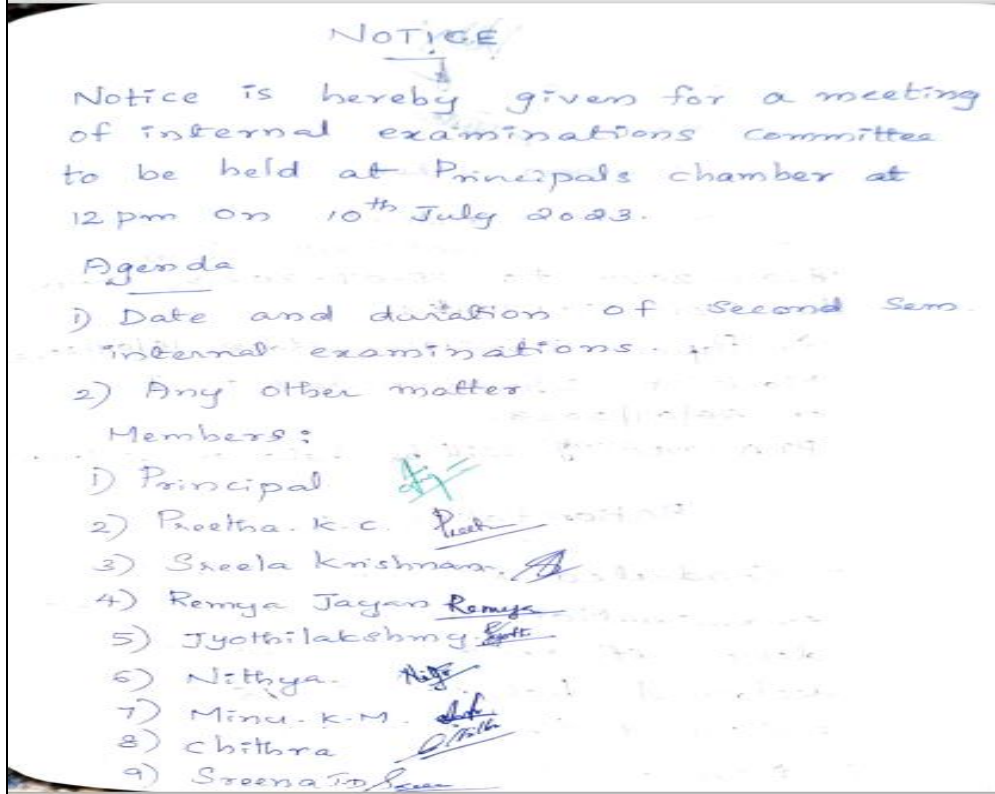 NOTICE
Notice is hereby given for a meeting
of internal examinations committee
to be held at Principals chamber at
12 pm on 10th July 2023.
Agenda
1) Date and duration of Second Sem
internal examinations.
2) Any other matter.
Members:
1) Principal
2) Preetha. K. C. Preeth
3) Sreela Krishnan.
4) Remya Jayan Remya
5) Jyothilakshmy. Jyoti
6) Nithya.
7) Minu. K. M.
8) Chithra
9) Sreena